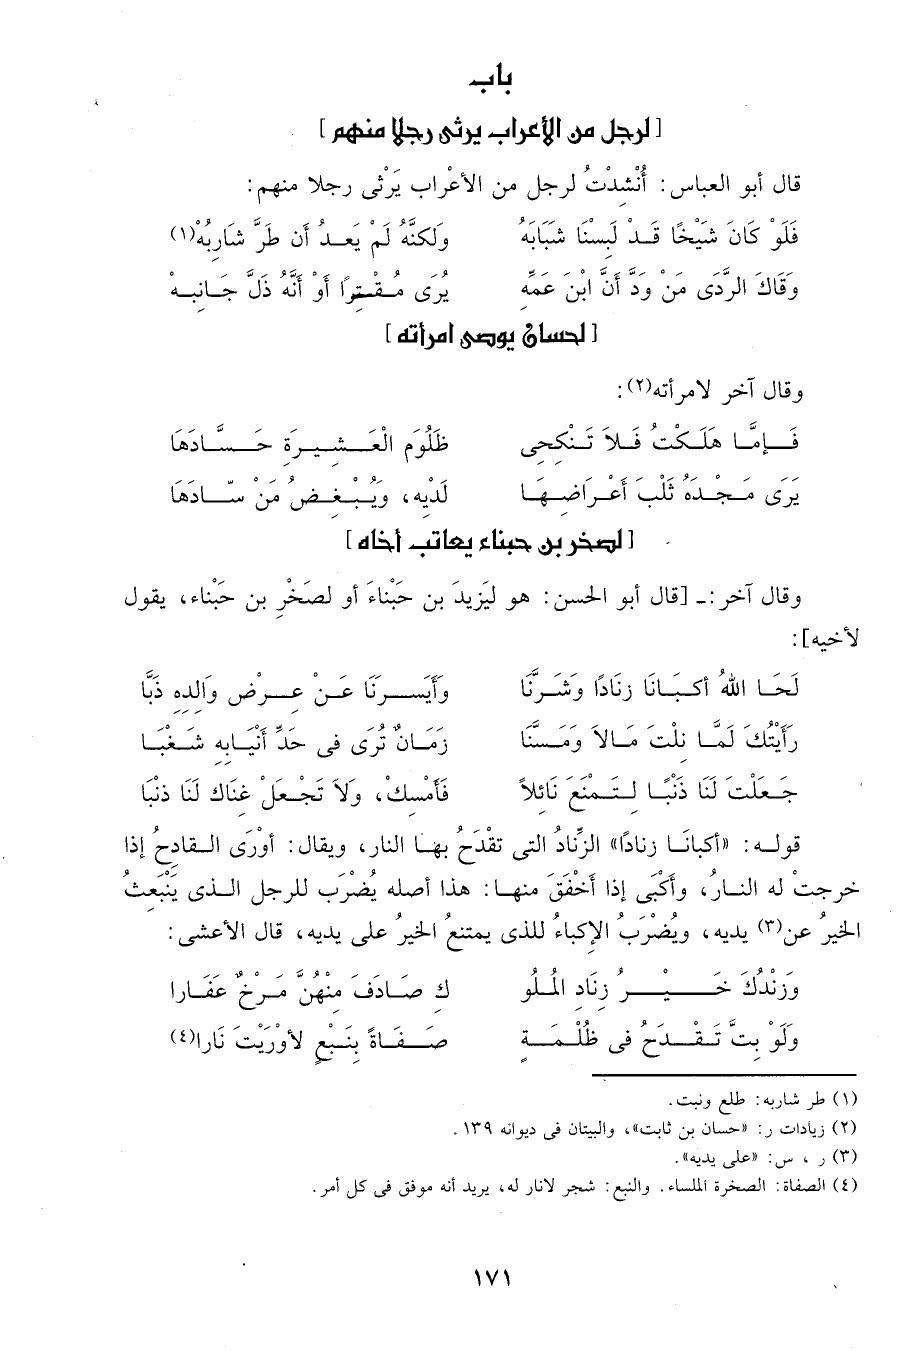 باب
[ لرجل من الأعراب يرثى رجلا منهم ]
قال أبو العباس: أُنْشِدْتُ لرجل من الأعْراب يَرْثى رجلا منهم:
فَلَوْ كَانَ شَيْخًا قَدْ لَبِسْنَا شَبَابَهُ وَلَكنَّهُ لَمْ يَعدُ أن طَرَّ شَاربُهْ(١)
وَقَاكَ الرَّدَى مَنْ وَدَّ أَنَّ ابْنَ عَمِّه يُرَى مُقْتِرًا أوْ أنَّهُ ذَلَّ جَانِبهْ
[ لحسان يوصى امرأته ]
وقال آخر لامرأته(٢):
فَإمَّا هَلَكْتُ فَلاَ تَنْكِحِى ظَلُوم الْعَشِيرَةِ حَسَّادَهَا
يَرَى مَجْدَهُ ثَلْبَ أعْرَاضِهَا لَدَيْهِ، وَيُبْغِضُ مَنْ سَادَهَا
[ لصخر بن حبناء يعاتب أخاه ]
وقال آخر:ـ [قال أبو الحسن: هو ليَزِيدَ بن حَبْناءَ أو لصَخْرِ بن حَبْناء، يقول
لأخيه]:
لَحَا اللهُ أكبَانَا زِنَادًا وَشَرَّنَا وَأيْسَرَنَا عَنْ عِرْضِ وَالِدِهِ ذَبَّا
رَأَيْتُكَ لَمَّا نِلْتَ مَالاً وَمَسَّنَا زَمَانٌ تُرَى فى حَدِّ أنْيَابِهِ شَغْبَا
جَعَلْتَ لَنَا ذَنْبًا لِتَمْنَعَ نَائلاً فَأمْسِكْ، وَلاَ تَجْعَلْ غِنَاكَ لَنَا ذنْبَا
قوله: «أكبانَا زِنادًا» الزِّنادُ التى تقْدَحُ بها النار، ويقال: أوْرَى القادِحُ إذا
خرجتْ له النارُ، وأكْبَى إذا أخْفَقَ منها: هذا أصله يُضْرَب للرجل الذى يَنْبَعِثُ
الخيرُ عن(٣) يديه، ويُضْرَبُ الإكباءُ للذى يمتنعُ الخيرُ على يديه، قال الأعشى:
وَزَنْدُكَ خَيْرُ زِنَادِ المُلُو ك صَادَفَ مِنْهُنَّ مَرْخٌ عَفَارا
وَلَوْ بِتَّ تَقْدَحُ فى ظُلْمَةٍ صَفَاةً بِنَبْعٍ لأوْرَيْتَ نَارا(٤)
(١) طر شاربه: طلع ونبت.
(٢) زيادات ر: «حسان بن ثابت»، والبيتان فى ديوانه ١٣٩.
(٣) ر ، س: «على يديه».
(٤) الصفاة: الصخرة الملساء. والنبع: شجر لانار له، يريد أنه موفق فى كل أمر.
١٧١